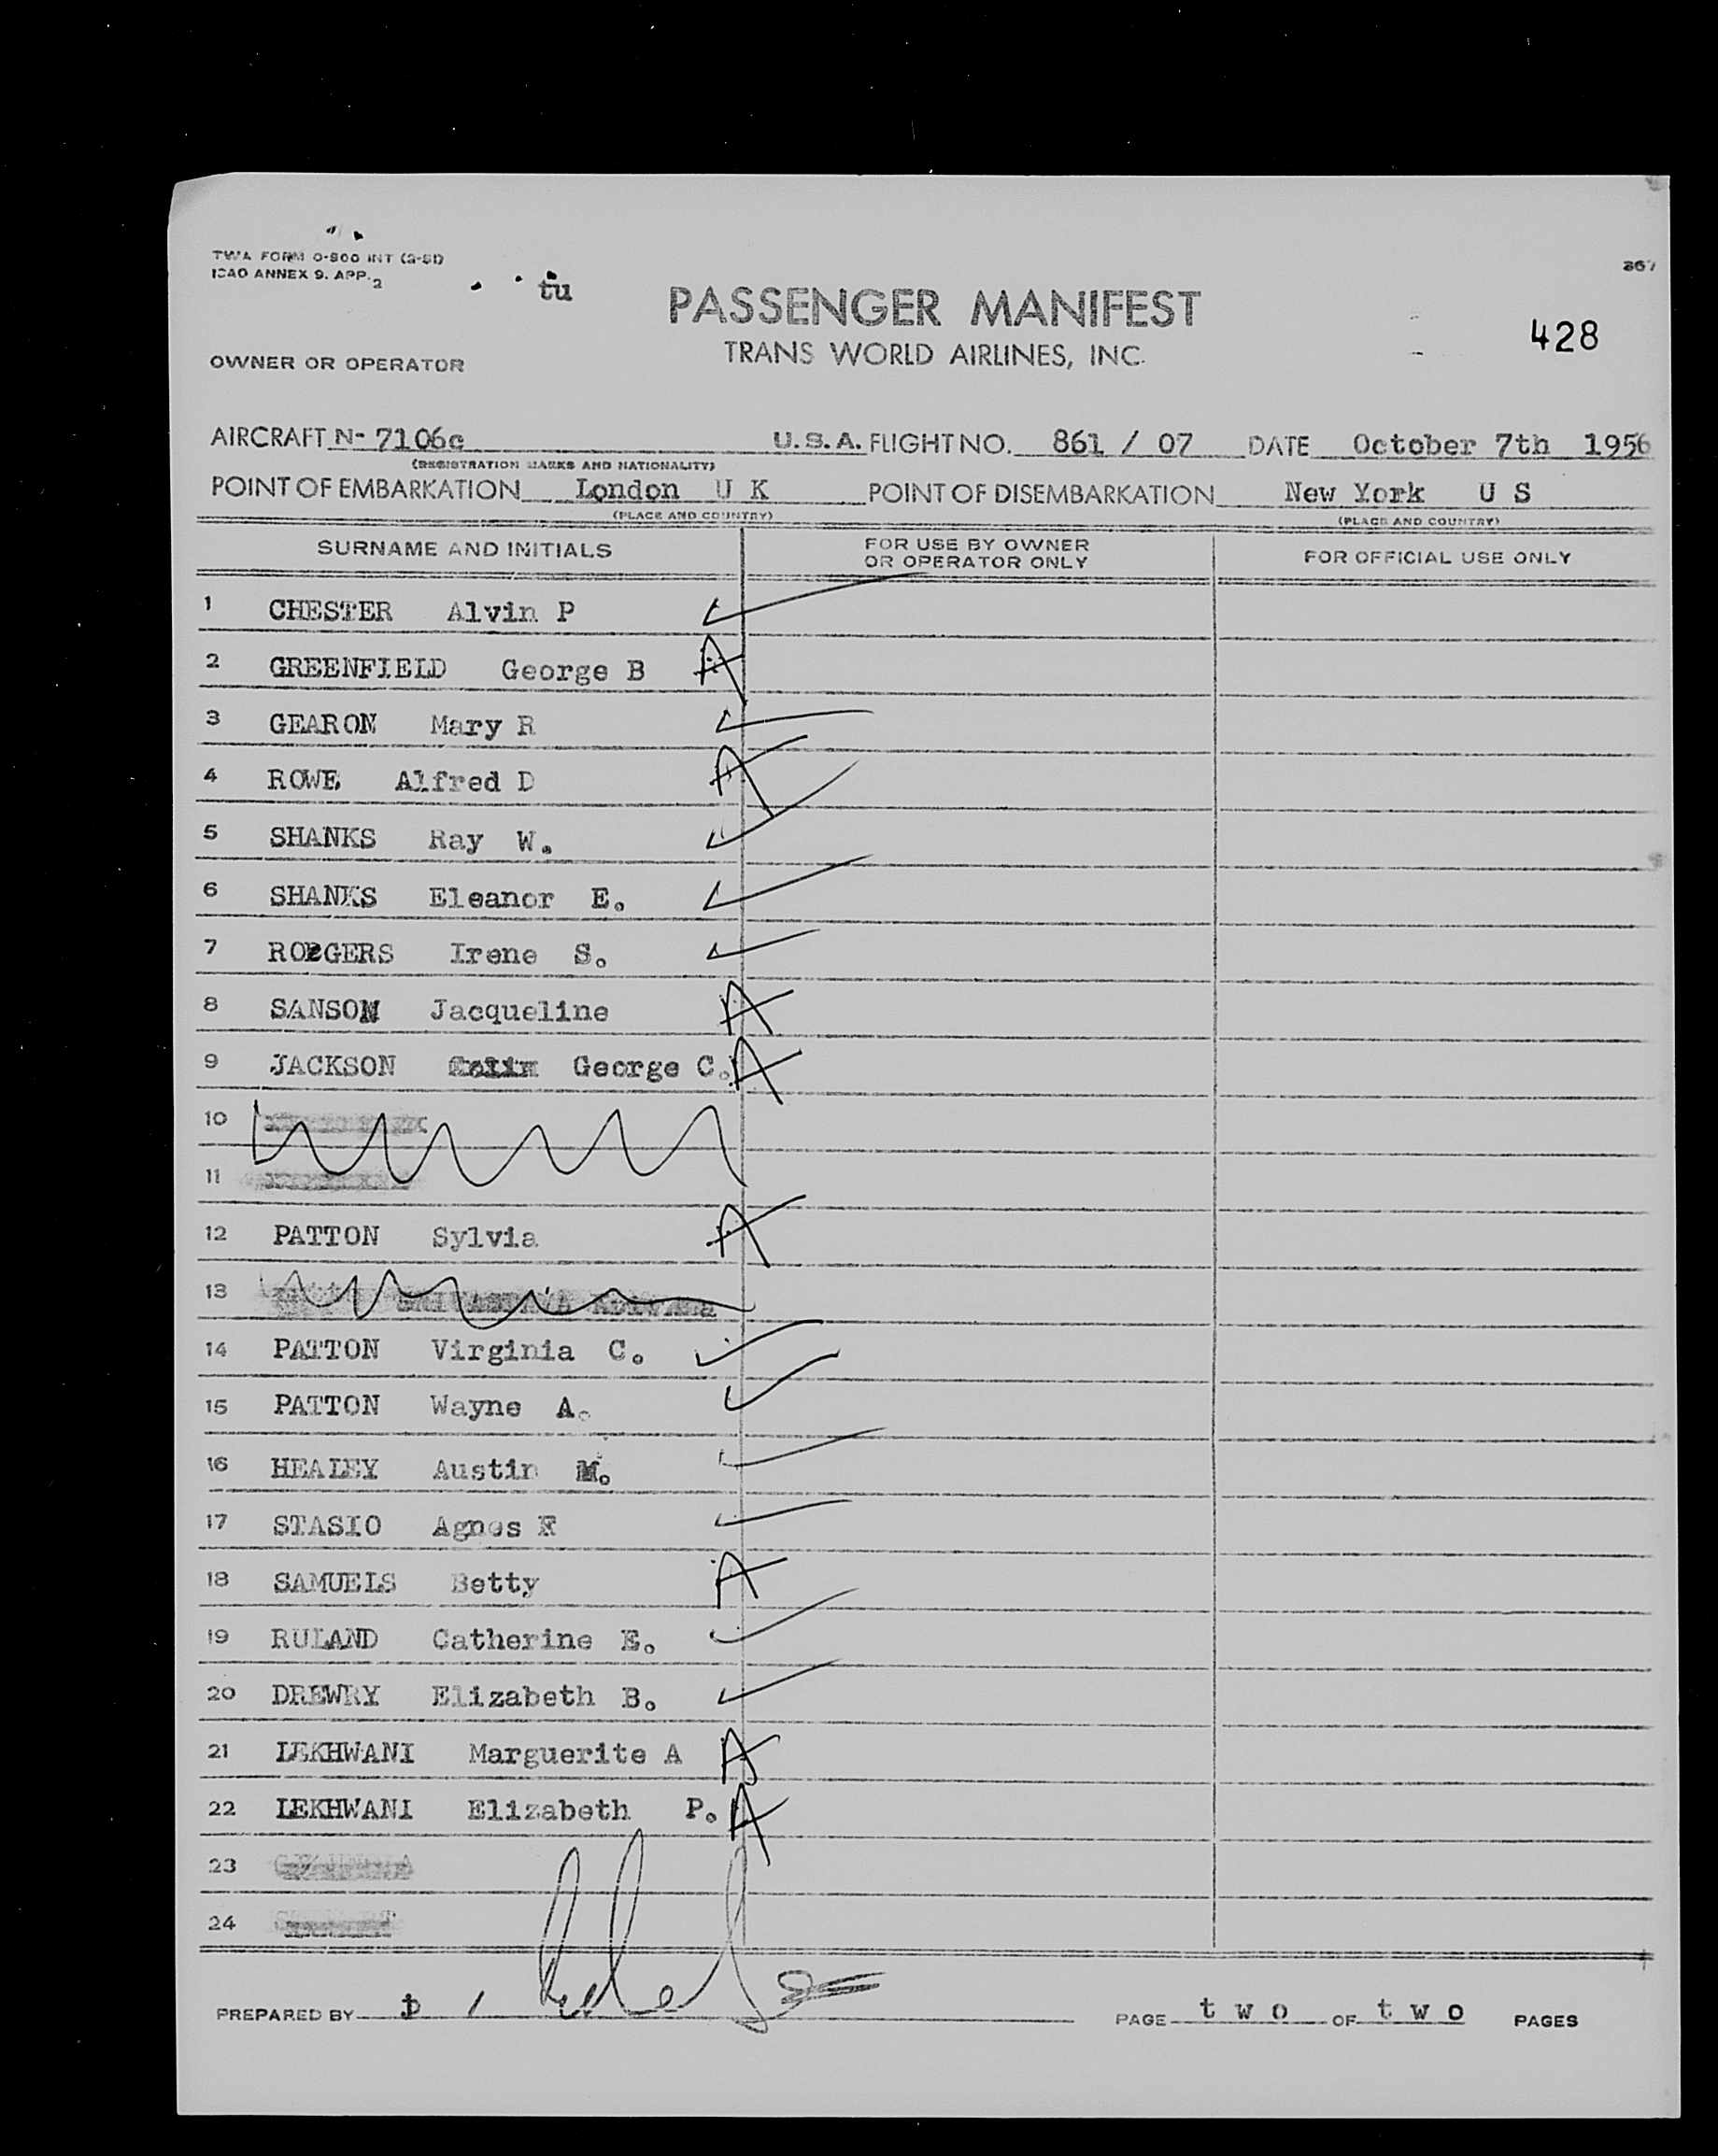 TWA FORM O-800 INT (2-51)
ICAO ANNEX 9. APP. 2
tu
PASSENGER MANIFEST
428
TRANS WORLD AIRLINES, INC.
OWNER OR OPERATOR
AIRCRAFT N- 7106c U.S.A. FLIGHT NO. 861 / 07 DATE October 7th 1956
(REGISTRATION MARKS AND NATIONALITY)
POINT OF EMBARKATION London U K POINT OF DISEMBARKATION New York U S
(PLACE AND COUNTRY) (PLACE AND COUNTRY)
SURNAME AND INITIALS FOR USE BY OWNER OR OPERATOR ONLY FOR OFFICIAL USE ONLY
1 CHESTER Alvin P
2 GREENFIELD George B A
3 GEARON Mary R
4 ROWE Alfred D A
5 SHANKS Ray W.
6 SHANKS Eleanor E.
7 Irene S.
8 SANSOM Jacqueline A
9 JACKSON George C. A
10
11
12 PATTON Sylvia A
13
14 PATTON Virginia C.
15 PATTON Wayne A.
16 HEALEY Austin M.
17 STASIO Agnes F
18 SAMUELS Betty A
19 RULAND Catherine E.
20 DREWRY Elizabeth B.
21 LEKHWANI Marguerite A A
22 LEKHWANI Elizabeth P. A
23
24
PREPARED BY PAGE two OF two PAGES